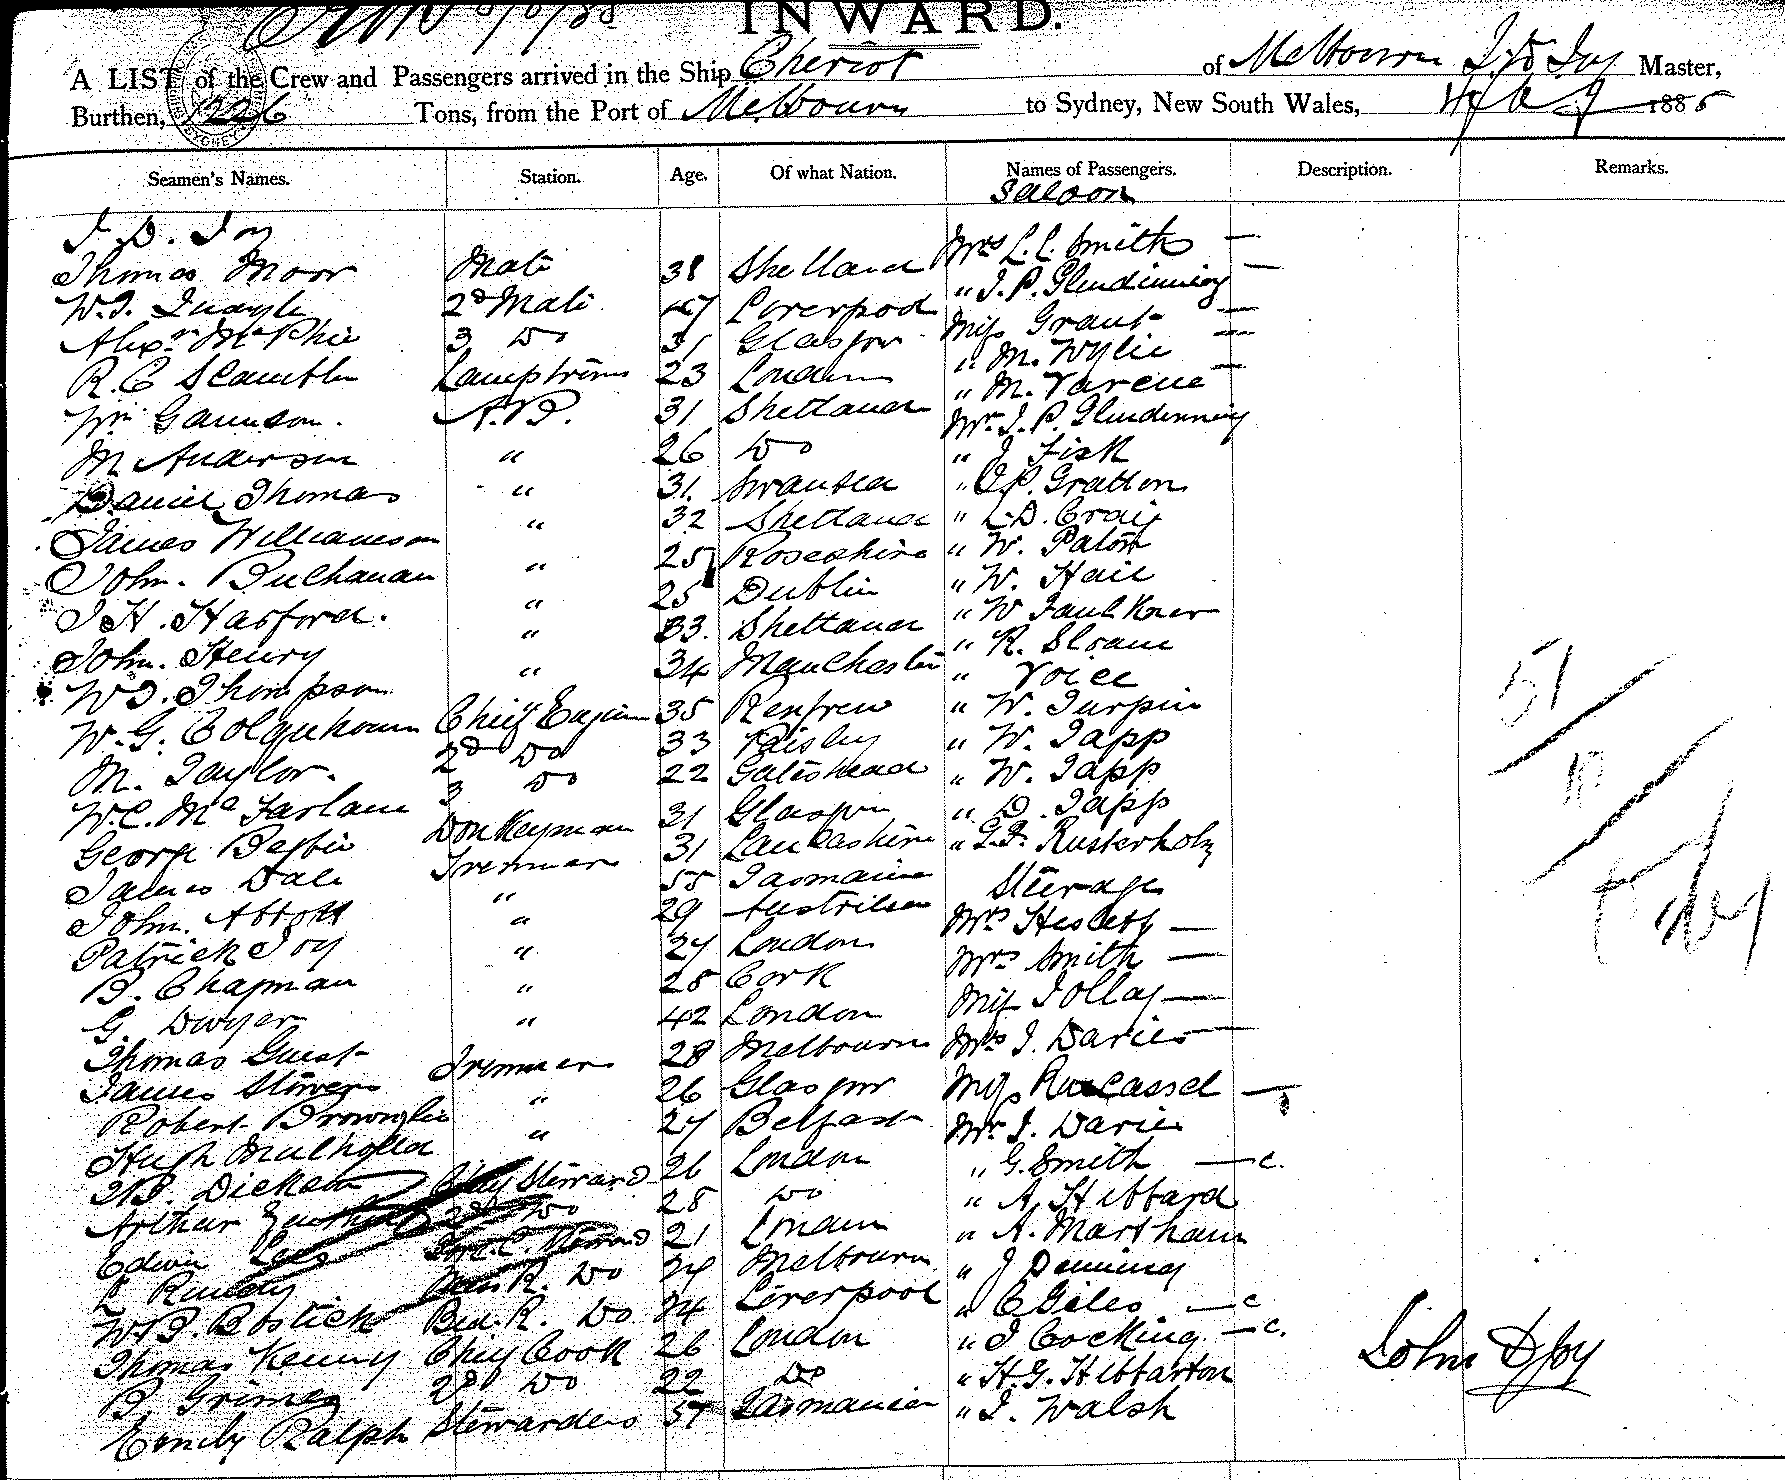 INWARD.
A LIST of the Crew and Passengers arrived in the Ship Cheviot of Melbourne J. D. Joy Master,
Burthen, 1226 Tons, from the Port of Melbourne to Sydney, New South Wales, 1885
Seamen's Names. Station. Age. Of what Nation. Names of Passengers. Description. Remarks.
Saloon
J. D. Joy
Mrs L. L. Smith —
Thomas Moor Mate 38 Shetland " J. P. Glendinning —
W. J. Quayle 2d Mate 47 Liverpool Miss Grant —
Alexr McPhie 3 Do 31 Glasgow " M. Wylie —
R. C. Scambler Lamptrimr 23 London " M. Varcue —
Wm Gaunson. A.B. 31 Shetland Mr. J. P. Glendinning
M Anderson " 26 Do " J Fisk
Daniel Thomas " 31. Swansea " C. P. Gratton
James Williamson " 32 Shetland " L. D. Craig
John. Buchanan " 25 Rosshire " W. Paton
J H. Hasford. " 25 Dublin " W. Hail
John. Henry " 33. Shetland " W Faulkner
W J. Thompson " 34 Manchester " R. Sloane
W. G. Colquhoun Chief Engin 35 Renfrew " Voice
M. Taylor. 2d Do 33 Paisley " W. Turpin
W. C. McFarlane 3 Do 22 Gateshead " W. Tapp
George Donkeyman 31 Glasgow " W. Tapp
James Dale Firemmer 31 Lancashire " D. Tapp
John. Abbott " 55 Tasmania " Rusterholz
Patrick Joy " 29 Steerage
B. Chapman " 27 London Mrs Hesleth —
G. Dwyer " 28 Cork Mrs Smith —
Thomas Guest " 42 London Miss Jollay —
James Stowers Firemmer 28 Melbourne Mrs J. Davies —
Robert Brownlie " 26 Glasgow
Hugh Mulholla " 27 Belfast Mr J. Davies
Dickson Chief Steward 26 London " G. Smith — c.
Arthur 2d Do 28 Do " A. Hibbard
Edwin 21 London " A. Markham
R. Do 24 Melbourn " J Denning
W. B. Bostick Bed. R. Do. 24 Liverpool " C Giles — c
Thomas Kenny Chief Cook 26 London " J Cocking — c.
B Grimes 2d Do 22 Do " H. G. Hibbarton
Emily Ralph Stewardess 37 Tasmania " J. Walsh
51
John D Joy